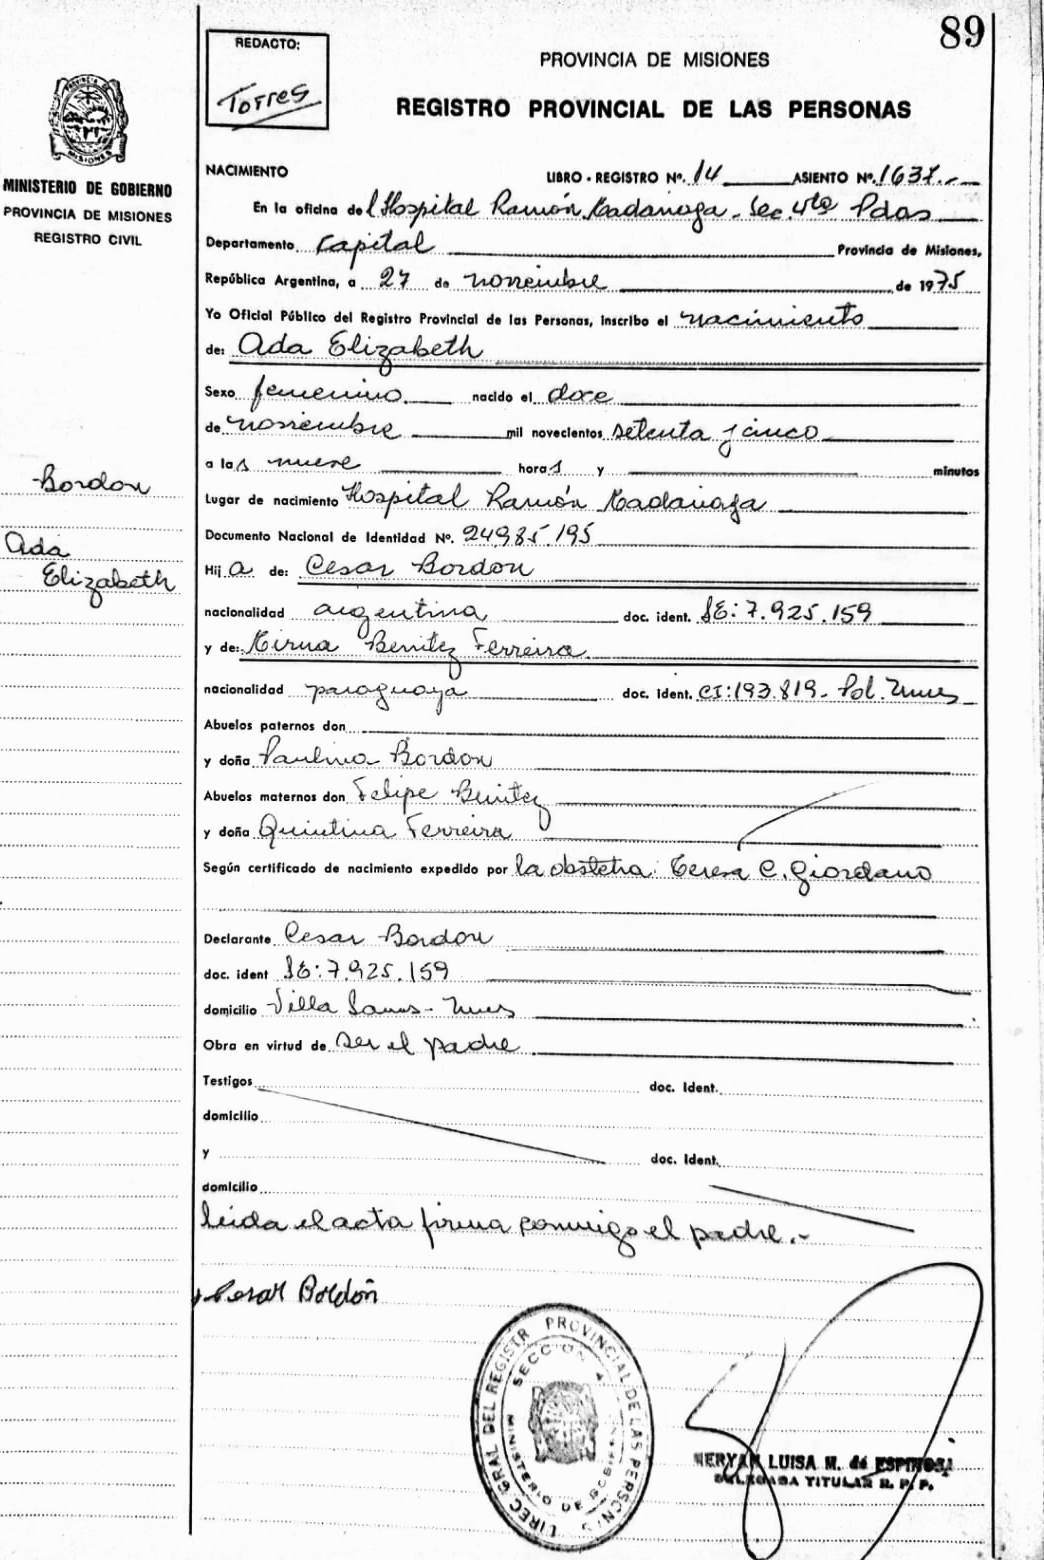 89
REDACTO:
Torres
PROVINCIA DE MISIONES
REGISTRO PROVINCIAL DE LAS PERSONAS
PROVINCIA DE
MISIONES
MINISTERIO DE GOBIERNO
PROVINCIA DE MISIONES
REGISTRO CIVIL
NACIMIENTO LIBRO - REGISTRO Nº. 14 ASIENTO Nº.
En la oficina del Hospital Ramón Madariaga - Sec 4ta Pdas
Departamento Capital Provincia de Misiones,
República Argentina, a 27 de noviembre de 1975
Yo Oficial Público del Registro Provincial de las Personas, inscribo el nacimiento
de: Ada Elizabeth
Sexo femenino nacido el doce
de noviembre mil novecientos setenta y cinco
a las nueve horas y minutos
Bordon
Lugar de nacimiento Hospital Ramón Madariaga
Documento Nacional de Identidad Nº. 24985.195
Ada
Elizabeth
Hija de: Cesar Bordon
nacionalidad argentina doc. ident. LE: 7.925.159
y de: Mirna Benitez Ferreira
nacionalidad paraguaya doc. ident. CI: 193.819 - Pol. Mnes
Abuelos paternos don
y doña Paulina Bordon
Abuelos maternos don Felipe Benitez
y doña Quintina Ferreira
Según certificado de nacimiento expedido por la obstetra: Teresa C. Giordano
Declarante Cesar Bordon
doc. ident LE: 7.925.159
domicilio Villa - Mnes
Obra en virtud de ser el padre
Testigos doc. Ident.
domicilio
y doc. Ident.
domicilio
leida el acta firma conmigo el padre.-
Cesar Bordón
DIREC GRAL DEL REGISTR PROVINCIAL DE LAS PERSONAS
SECCION 4
MINISTERIO DE GOBIERNO
MERYAN LUISA M. de ESPINOSA
DELEGADA TITULAR R. P. P.